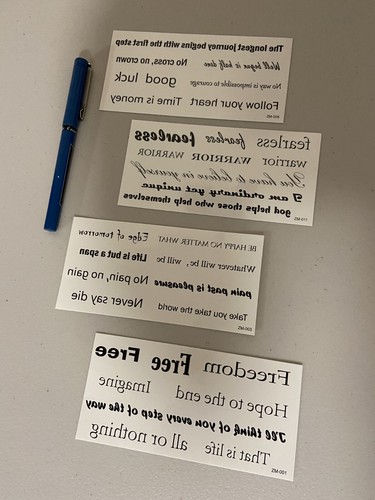 The longest journey begins with the first step
Well begun is half done No cross, no crown
No way is impossible to courage good luck
Follow your heart Time is money
fearless fearless fearless
warrior WARRIOR WARRIOR
You have to believe in yourself
I am ordinary yet unique
god helps those who help themselves
BE HAPPY NO MATTER WHAT Edge of tomorrow
Whatever will be, will be Life is but a span
pain past is pleasure No pain, no gain
Take you take the world Never say die
Freedom Free Free
Hope to the end Imagine
I'll think of you every step of the way
That is life all or nothing